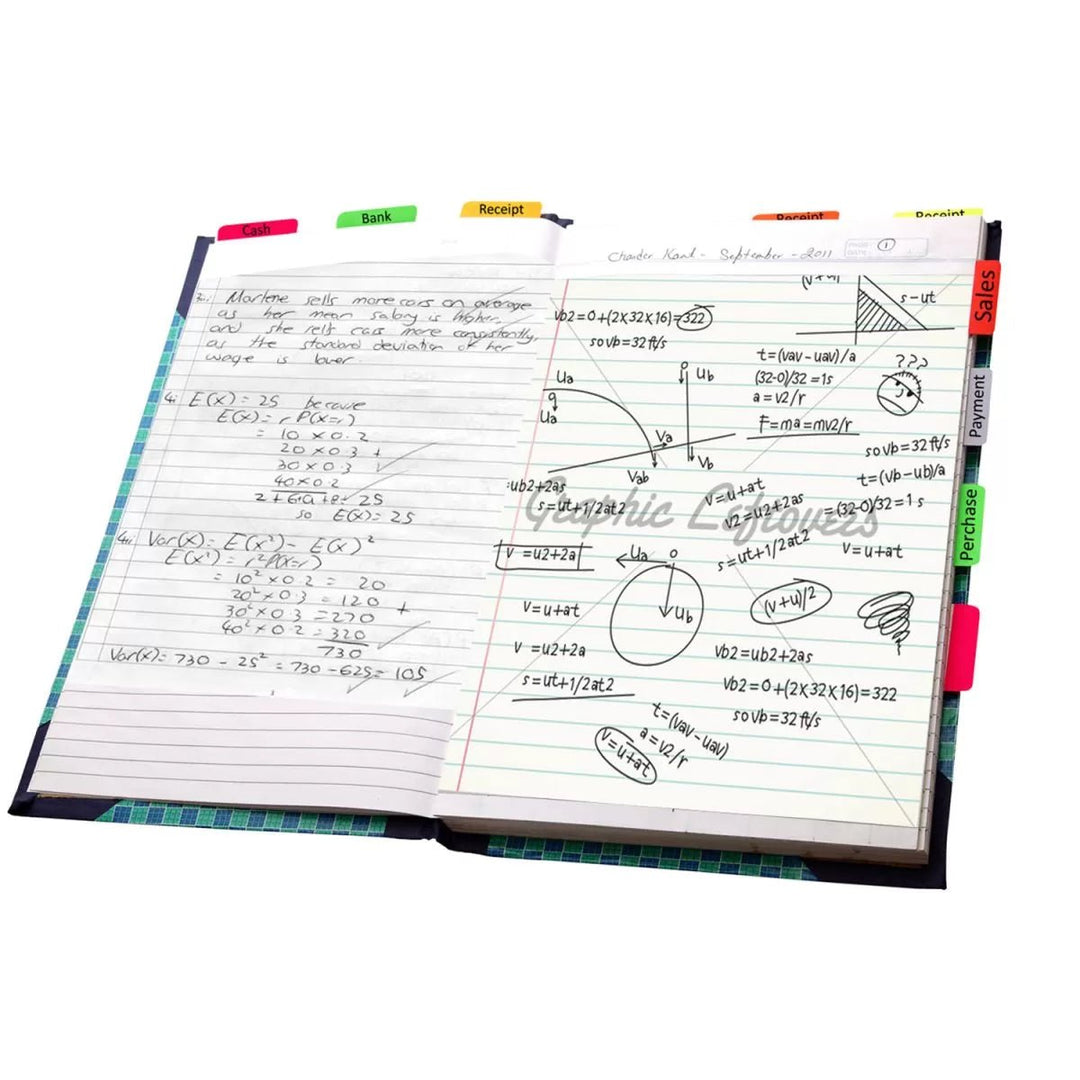 Cash
Bank
Receipt
Receipt
Receipt
Sales
Payment
Perchase
Marlene sells more cars on average
as her mean salary is higher,
and she sells cars more consistently,
as the standard deviation of her
wage is lower.
4i E(X) = 25 because
E(X) = r P(X=r)
= 10 × 0.2
20 × 0.3 +
30 × 0.3
40 × 0.2
= 25
so E(X) = 25
4ii Var(X) = E(X²) - E(X)²
E(X²) = r²P(X=r)
= 10² × 0.2 = 20
20² × 0.3 = 120 +
30² × 0.3 = 270
40² × 0.2 = 320
730
Var(X) = 730 - 25² = 730 - 625 = 105
Chander Kant - September - 2011
PAGE 1
DATE
(v+u)
s-ut
vb2=0+(2x32x16)=322
so vb=32 ft/s
t=(vav-uav)/a
(32-0)/32=1s
a=v2/r
F=ma=mv2/r
???
Ua
g
Ua
Ub
Va
Vab
Vb
so vb=32 ft/s
t=(vb-ub)/a
=(32-0)/32=1s
=ub2+2as
s=ut+1/2at2
v=u+at
v2=u2+2as
s=ut+1/2at2
v=u+at
Graphic Leftovers
v =u2+2a
Ua
o
Ub
(v+u)/2
v=u+at
v =u2+2a
s=ut+1/2at2
vb2=ub2+2as
vb2=0+(2x32x16)=322
so vb=32 ft/s
t=(vav-uav)
a=v2/r
v=u+at